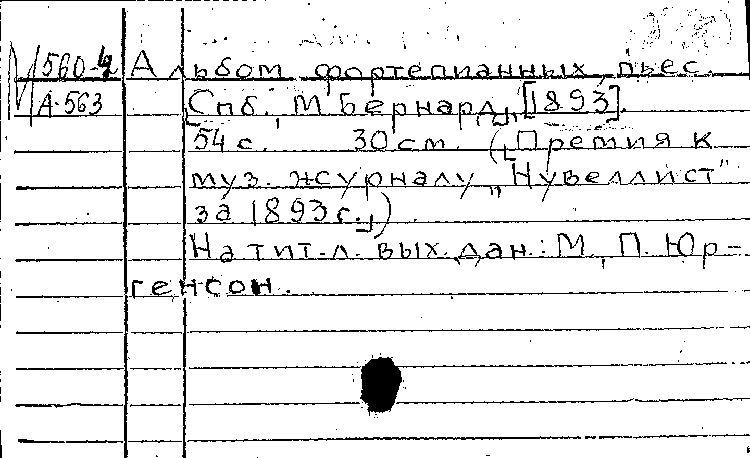 М 560-4 Альбом фортепианных пьес.
А-563 Спб., М. Бернард, [1893].
54 с. 30 см. (Премия к
муз. журналу „Нувеллист"
за 1893 г.)
На тит. л. вых. дан.: М., П. Юр-
генсон.